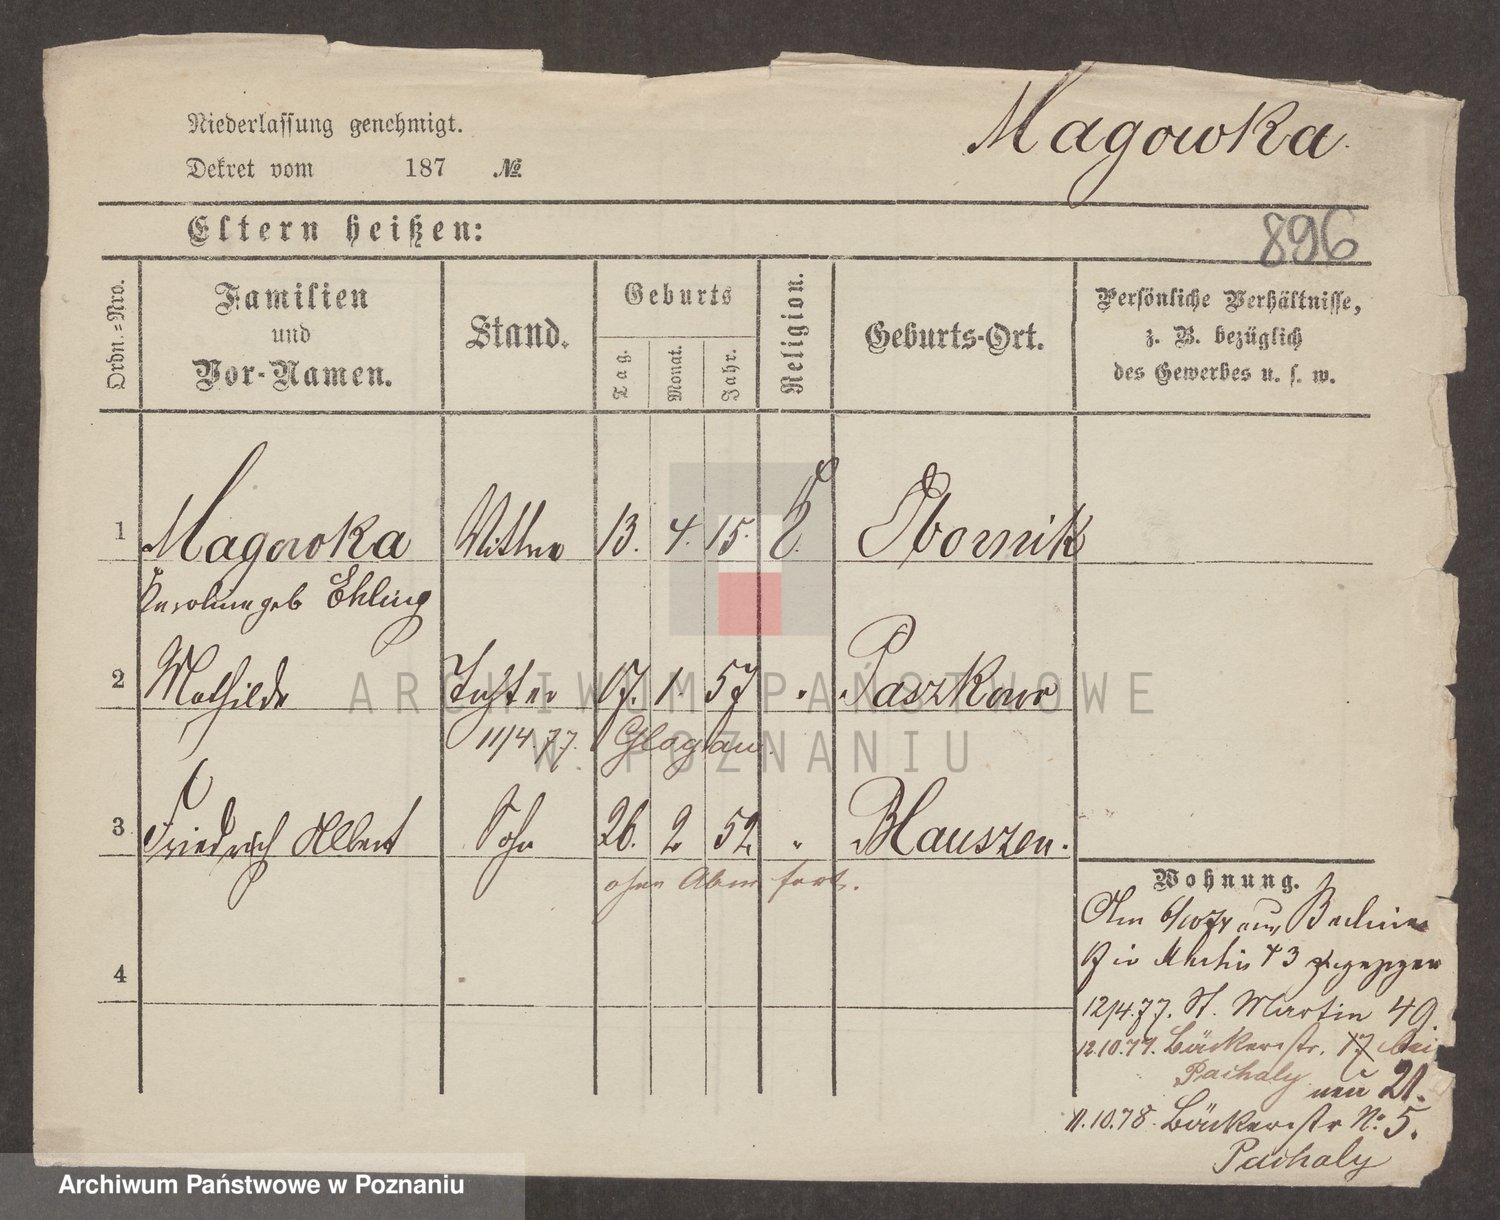 Niederlassung genehmigt.
Magowka.
Dekret vom 187 №
Eltern heißen:
896
Ordn.=Nro.
Familien
und
Vor-Namen.
Stand.
Geburts
Tag.
Monat.
Jahr.
Religion.
Geburts-Ort.
Persönliche Verhältnisse,
z. B. bezüglich
des Gewerbes u. s. w.
1 Magowka Wittwe 13. 4. 15. E. Obornik
geb Ehling
2 Mathilde Tochter 17. 1. 57 " Paszkowo
11/4.77. Glogau.
3 Friedrich Albert Sohn 26. 2 52 "
ohne Abm fort.
Wohnung.
Am
43 gezogen
4
12/4.77. St. Martin 49.
12.10.77. Bäckerstr. 17 bei
Pachaly neu 21.
11.10.78. Bäckerstr No. 5.
Pachaly
ARCHIWUM PAŃSTWOWE
W POZNANIU
Archiwum Państwowe w Poznaniu